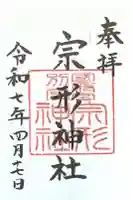 奉拝
宗形神社
令和七年四月十七日